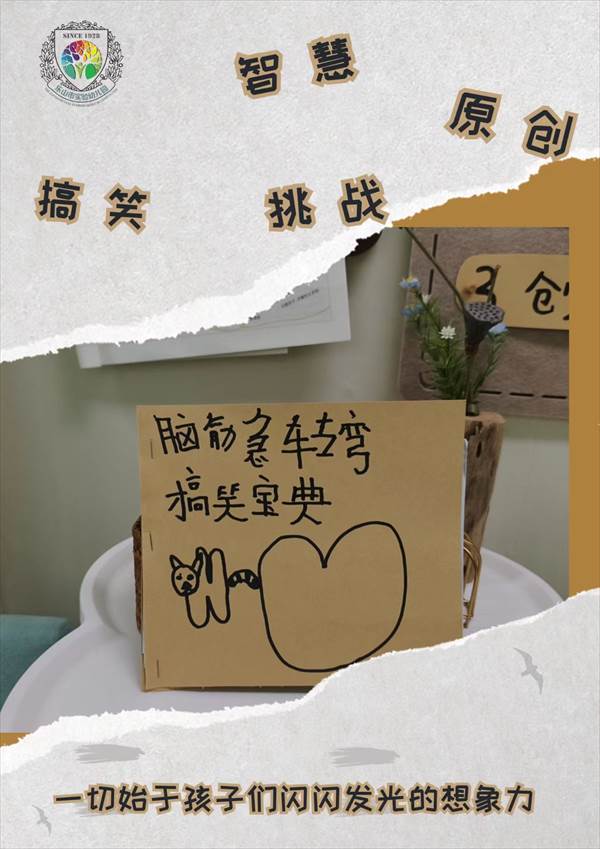 SINCE 1928
乐山市实验幼儿园
智慧
原创
搞笑
挑战
3 创
脑筋急转弯
搞笑宝典
一切始于孩子们闪闪发光的想象力